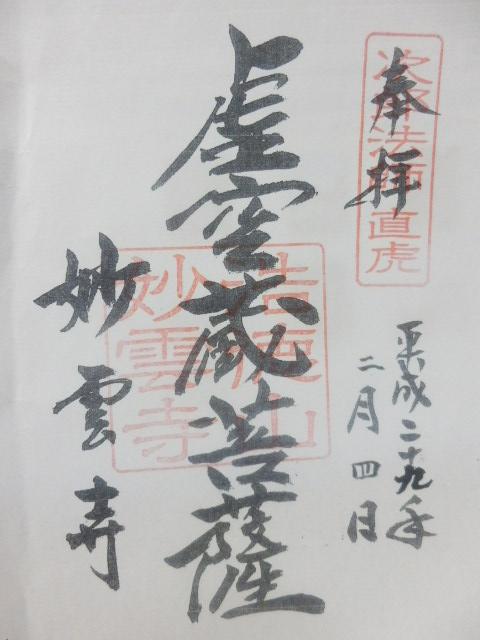 奉拝
次郎法師直虎
平成二十九年
二月四日
虚空蔵菩薩
妙雲寺
妙雲寺